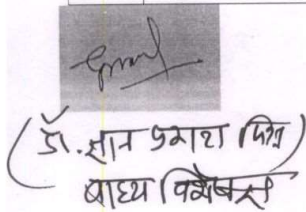 (डॉ. ज्ञान प्रकाश मिश्र)
बाह्य विशेषज्ञ